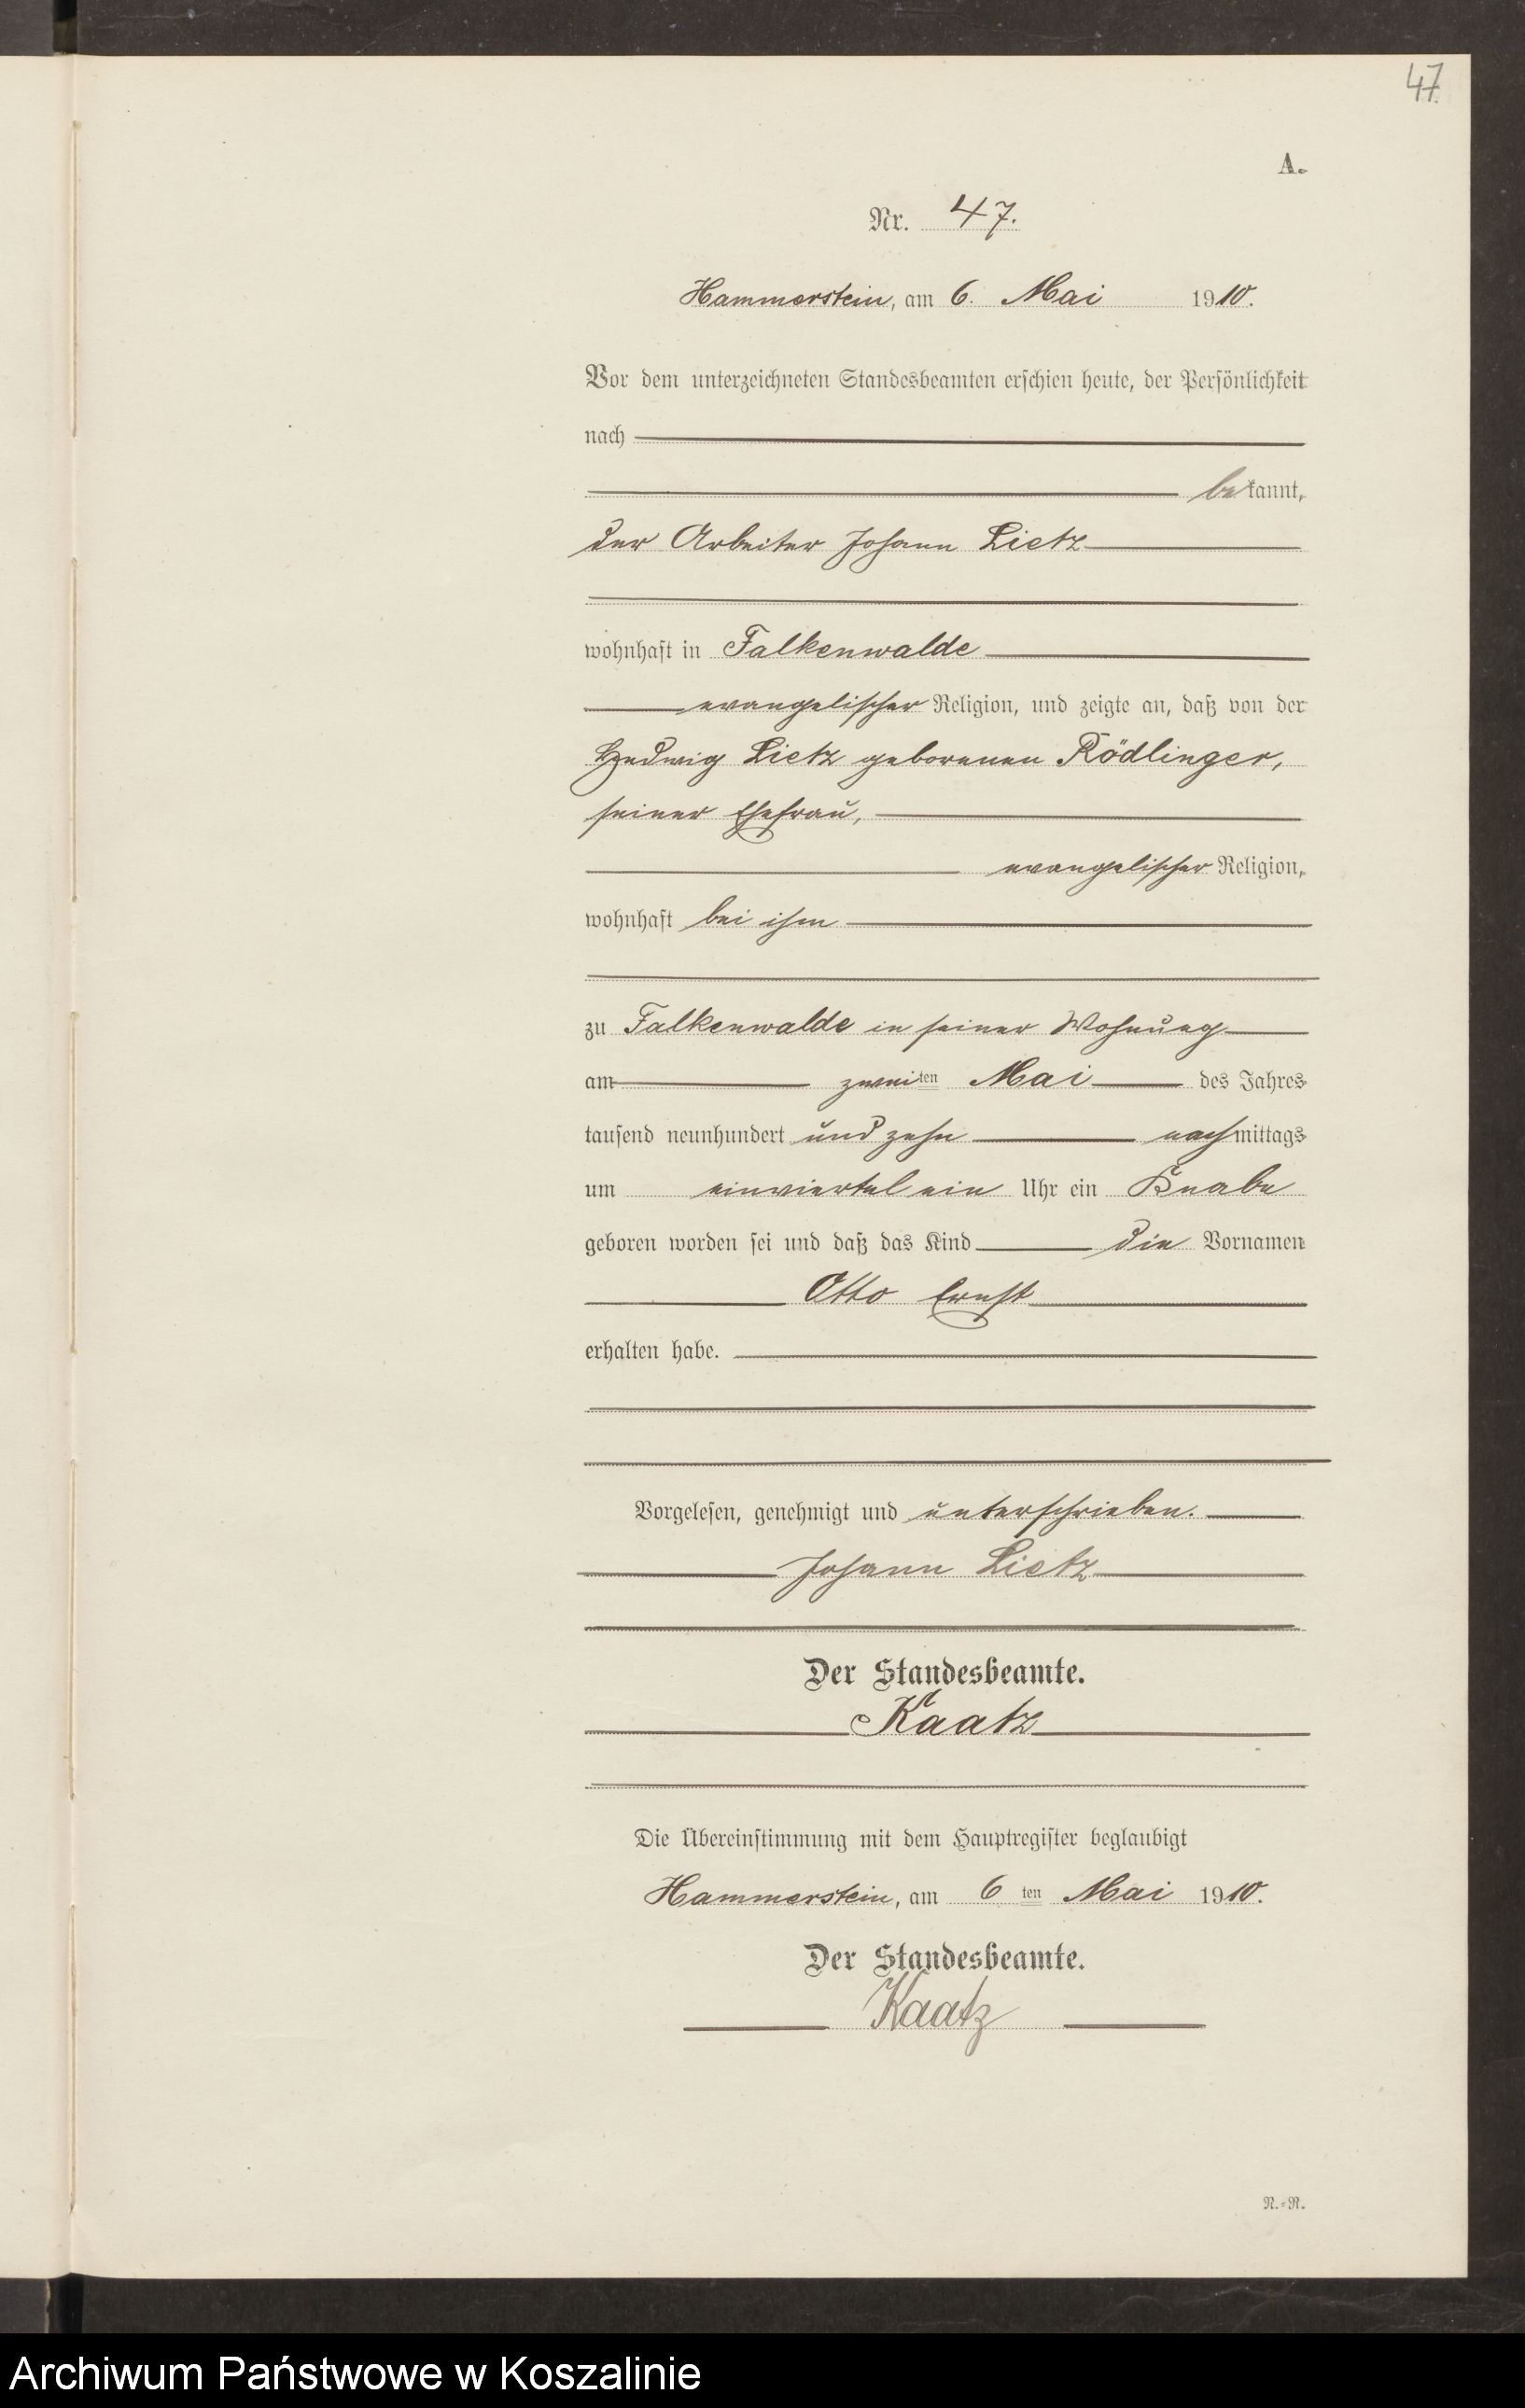 47.
A.
Nr. 47.
Hammerstein, am 6. Mai 1910.
Vor dem unterzeichneten Standesbeamten erschien heute, der Persönlichkeit
nach
bekannt,
der Arbeiter Johann Lietz
wohnhaft in Falkenwalde
evangelischer Religion, und zeigte an, daß von der
Hedwig Lietz geborenen Rödlinger,
seiner Ehefrau,
evangelischer Religion,
wohnhaft bei ihm
zu Falkenwalde in seiner Wohnung
am zweiten Mai des Jahres
tausend neunhundert und zehn nachmittags
um einviertel ein Uhr ein Knabe
geboren worden sei und daß das Kind die Vornamen
Otto Ernst
erhalten habe.
Vorgelesen, genehmigt und unterschrieben.
Johann Lietz
Der Standesbeamte.
Kaatz
Die Übereinstimmung mit dem Hauptregister beglaubigt
Hammerstein, am 6 ten Mai 1910.
Der Standesbeamte.
Kaatz
R.=R.
Archiwum Państwowe w Koszalinie